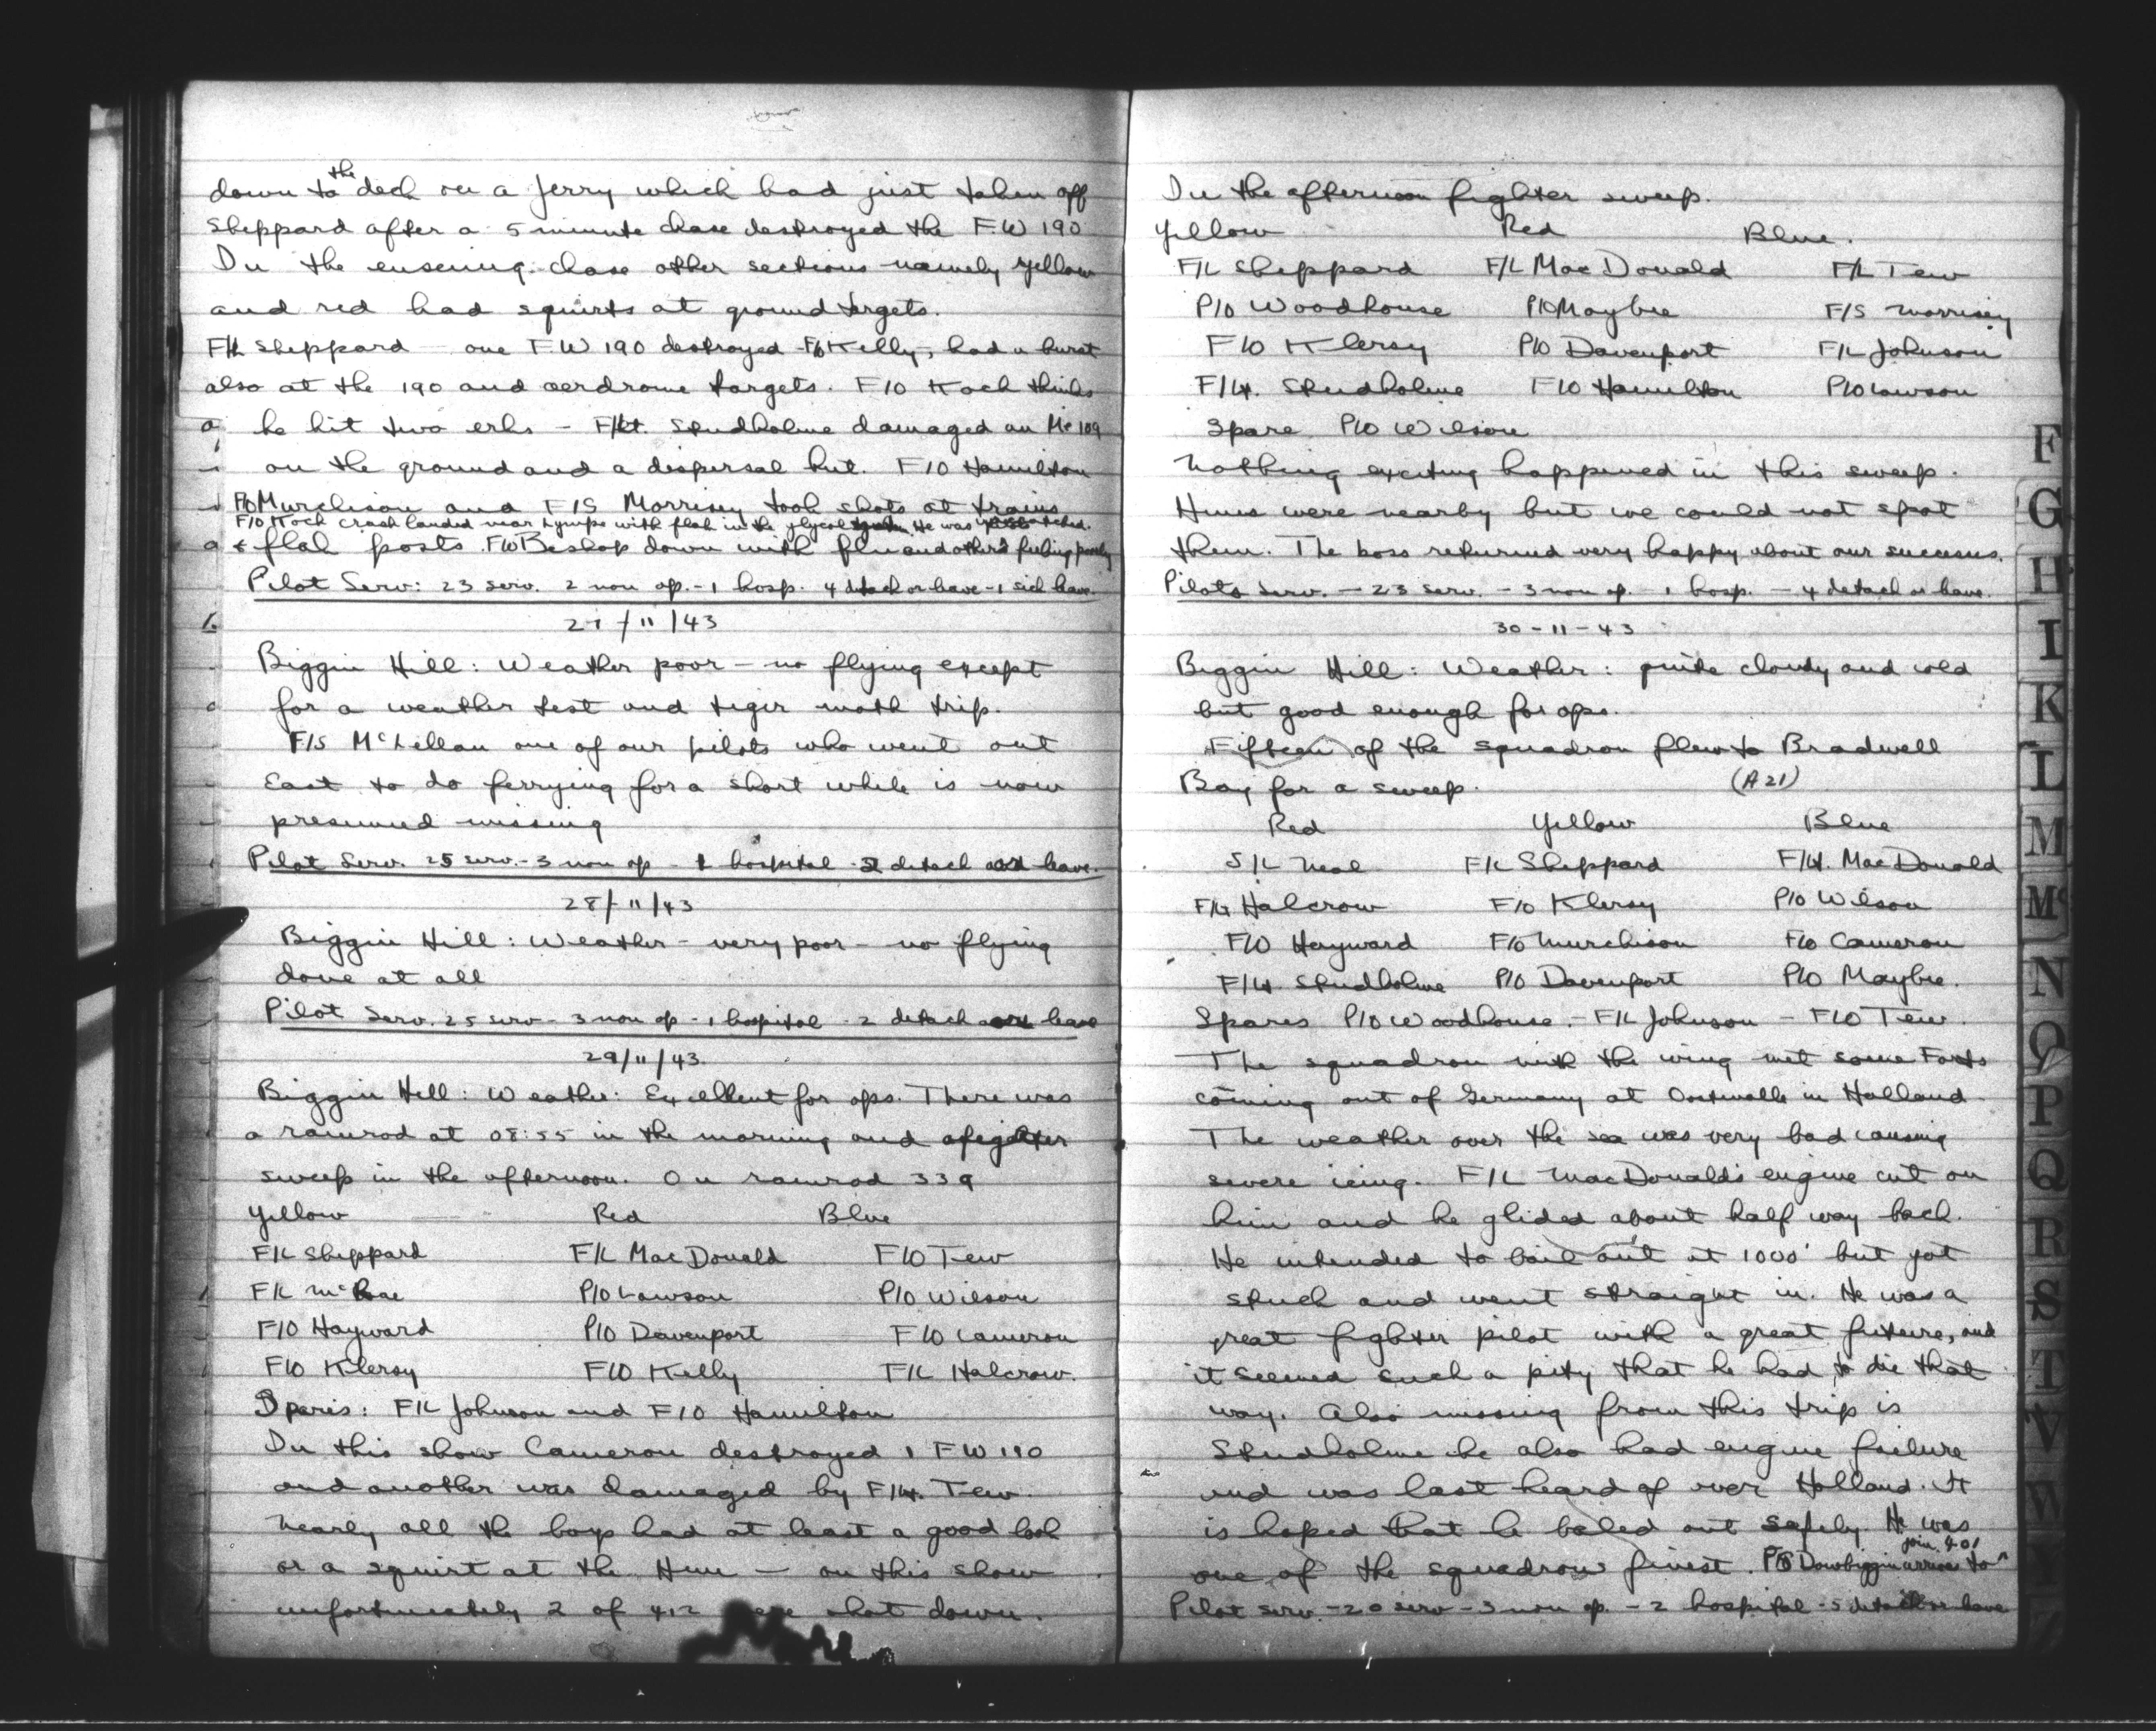 down to the deck on a Jerry which had just taken off
Sheppard after a 5 minute chase destroyed the F.W 190
In the ensueing chase other sections namely yellow
and red had squirts at ground targets.
F/L Sheppard - one F.W 190 destroyed - F/O Kelly, had a burst
also at the 190 and aerdrome targets. F/O Koch thinks
he hit two erks - F/Lt. Studholme damaged an Me 109
on the ground and a dispersal hut. F/O Hamilton
F/O Murchison and F/S Morrisey took shots at trains
F/O Koch crash landed near Lympe with flak in the glycol He was
& flak posts. F/O Beshop down with flu and others feeling poorly
Pilot Serv: 23 serv. 2 non op. - 1 hosp. 4 detach or leave - 1 sick leave.
27/11/43
Biggin Hill: Weather poor - no flying except
for a weather test and tiger moth trip.
F/S McLellan one of our pilots who went out
East to do ferrying for a short while is now
presumed missing
Pilot Serv. 25 serv. - 3 non op - 1 hospital - 2 detach and leave.
28/11/43
Biggin Hill: Weather - very poor - no flying
done at all
Pilot Serv. 25 serv - 3 non op - 1 hospital - 2 detach and leave
29/11/43.
Biggin Hill: Weather: Excellent for ops. There was
a ramrod at 08:55 in the morning and a fighter
sweep in the afternoon. On ramrod 339
Yellow Red Blue
F/L Sheppard F/L MacDonald F/O Tew
F/L McRae P/O Lawson P/O Wilson
F/O Hayward P/O Davenport F/O Cameron
F/O Klersy F/O Kelly F/L Halcrow.
Spares: F/L Johnson and F/O Hamilton
In this show Cameron destroyed 1 F W 190
and another was damaged by F/Lt. Tew.
Nearly all the boys had at least a good look
or a squirt at the Hun - on this show
unfortunately 2 of 412 were shot down.
In the afternoon fighter sweep.
Yellow Red Blue.
F/L Sheppard F/L MacDonald F/L Tew
P/O Woodhouse P/O Maybee F/S Morrisey
F/O Klersy P/O Davenport F/L Johnson
F/Lt. Studholme F/O Hamilton P/O Lawson
Spare P/O Wilson
Nothing exciting happened in this sweep.
Huns were nearby but we could not spot
them. The boss returned very happy about our success.
Pilots Serv. - 23 serv. - 3 non op. 1 hosp. - 4 detach or leave.
30-11-43
Biggin Hill: Weather: quite cloudy and cold
but good enough for ops.
Fifteen of the squadron flew to Bradwell
Bay for a sweep. (A 21)
Red Yellow Blue
S/L Neal F/L Sheppard F/Lt. MacDonald
F/Lt Halcrow F/O Klersy P/O Wilson
F/O Hayward F/O Murchison F/O Cameron
F/Lt Studholme P/O Davenport P/O Maybee.
Spares P/O Woodhouse. - F/L Johnson - F/O Tew.
The squadron with the wing met some Forts
coming out of Germany at in Holland.
The weather over the sea was very bad causing
severe icing. F/L MacDonald's engine cut on
him and he glided about half way back.
He intended to bail out at 1000' but got
stuck and went straight in. He was a
great fighter pilot with a great future, and
it seemed such a pity that he had to die that
way. Also missing from this trip is
Studholme he also had engine failure
and was last heard of over Holland. It
is hoped that he baled out safely. He was
one of the squadrons finest. P/O Dowbiggin arrives to join 401
Pilot serv. - 20 serv - 3 non op. - 2 hospital - 5 detach or leave
F
G
H
I
K
L
M
Mc
N
O
P
Q
R
S
T
V
W
Y
Z